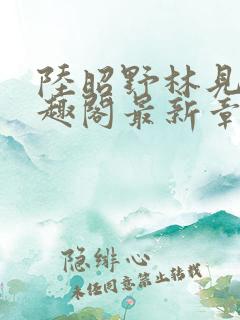 陸昭野林見
趣閣最新章
隐绯心
未经同意禁止转载